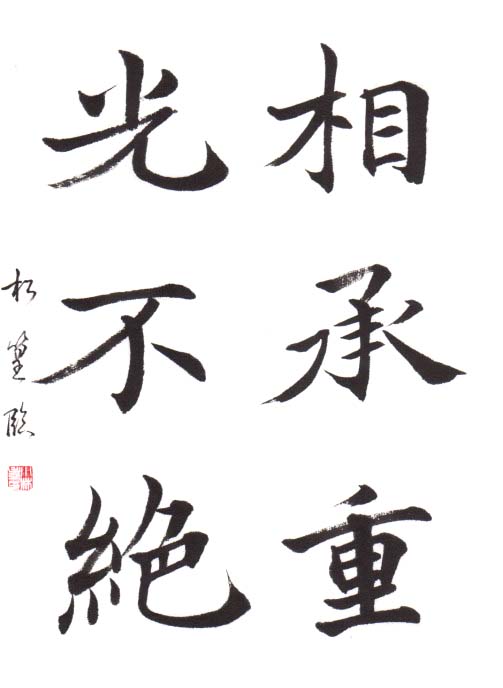 相承重
光不絶
松篁臨